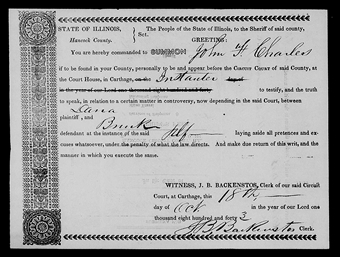 STATE OF ILLINOIS,
Hancock County.
Sct.
The People of the State of Illinois, to the Sheriff of said county,
GREETING:
You are hereby commanded to SUMMON John F Charles
if to be found in your County, personally to be and appear before the CIRCUIT COURT of said County, at
the Court House, in Carthage, on the Instanter
in the year of our Lord one thousand eight hundred and forty
to testify, and the truth
to speak, in relation to a certain matter in controversy, now depending in the said Court, between
Dana
plaintiff, and
Brink
defendant at the instance of the said self laying aside all pretences and ex-
cuses whatsoever, under the penalty of what the law directs. And make due return of this writ, and the
manner in which you execute the same.
WITNESS, J. B. BACKENSTOS, Clerk of our said Circuit
Court, at Carthage, this 18th
day of Oct in the year of our Lord one
thousand eight hundred and forty 3
J B Backenstos Clerk.